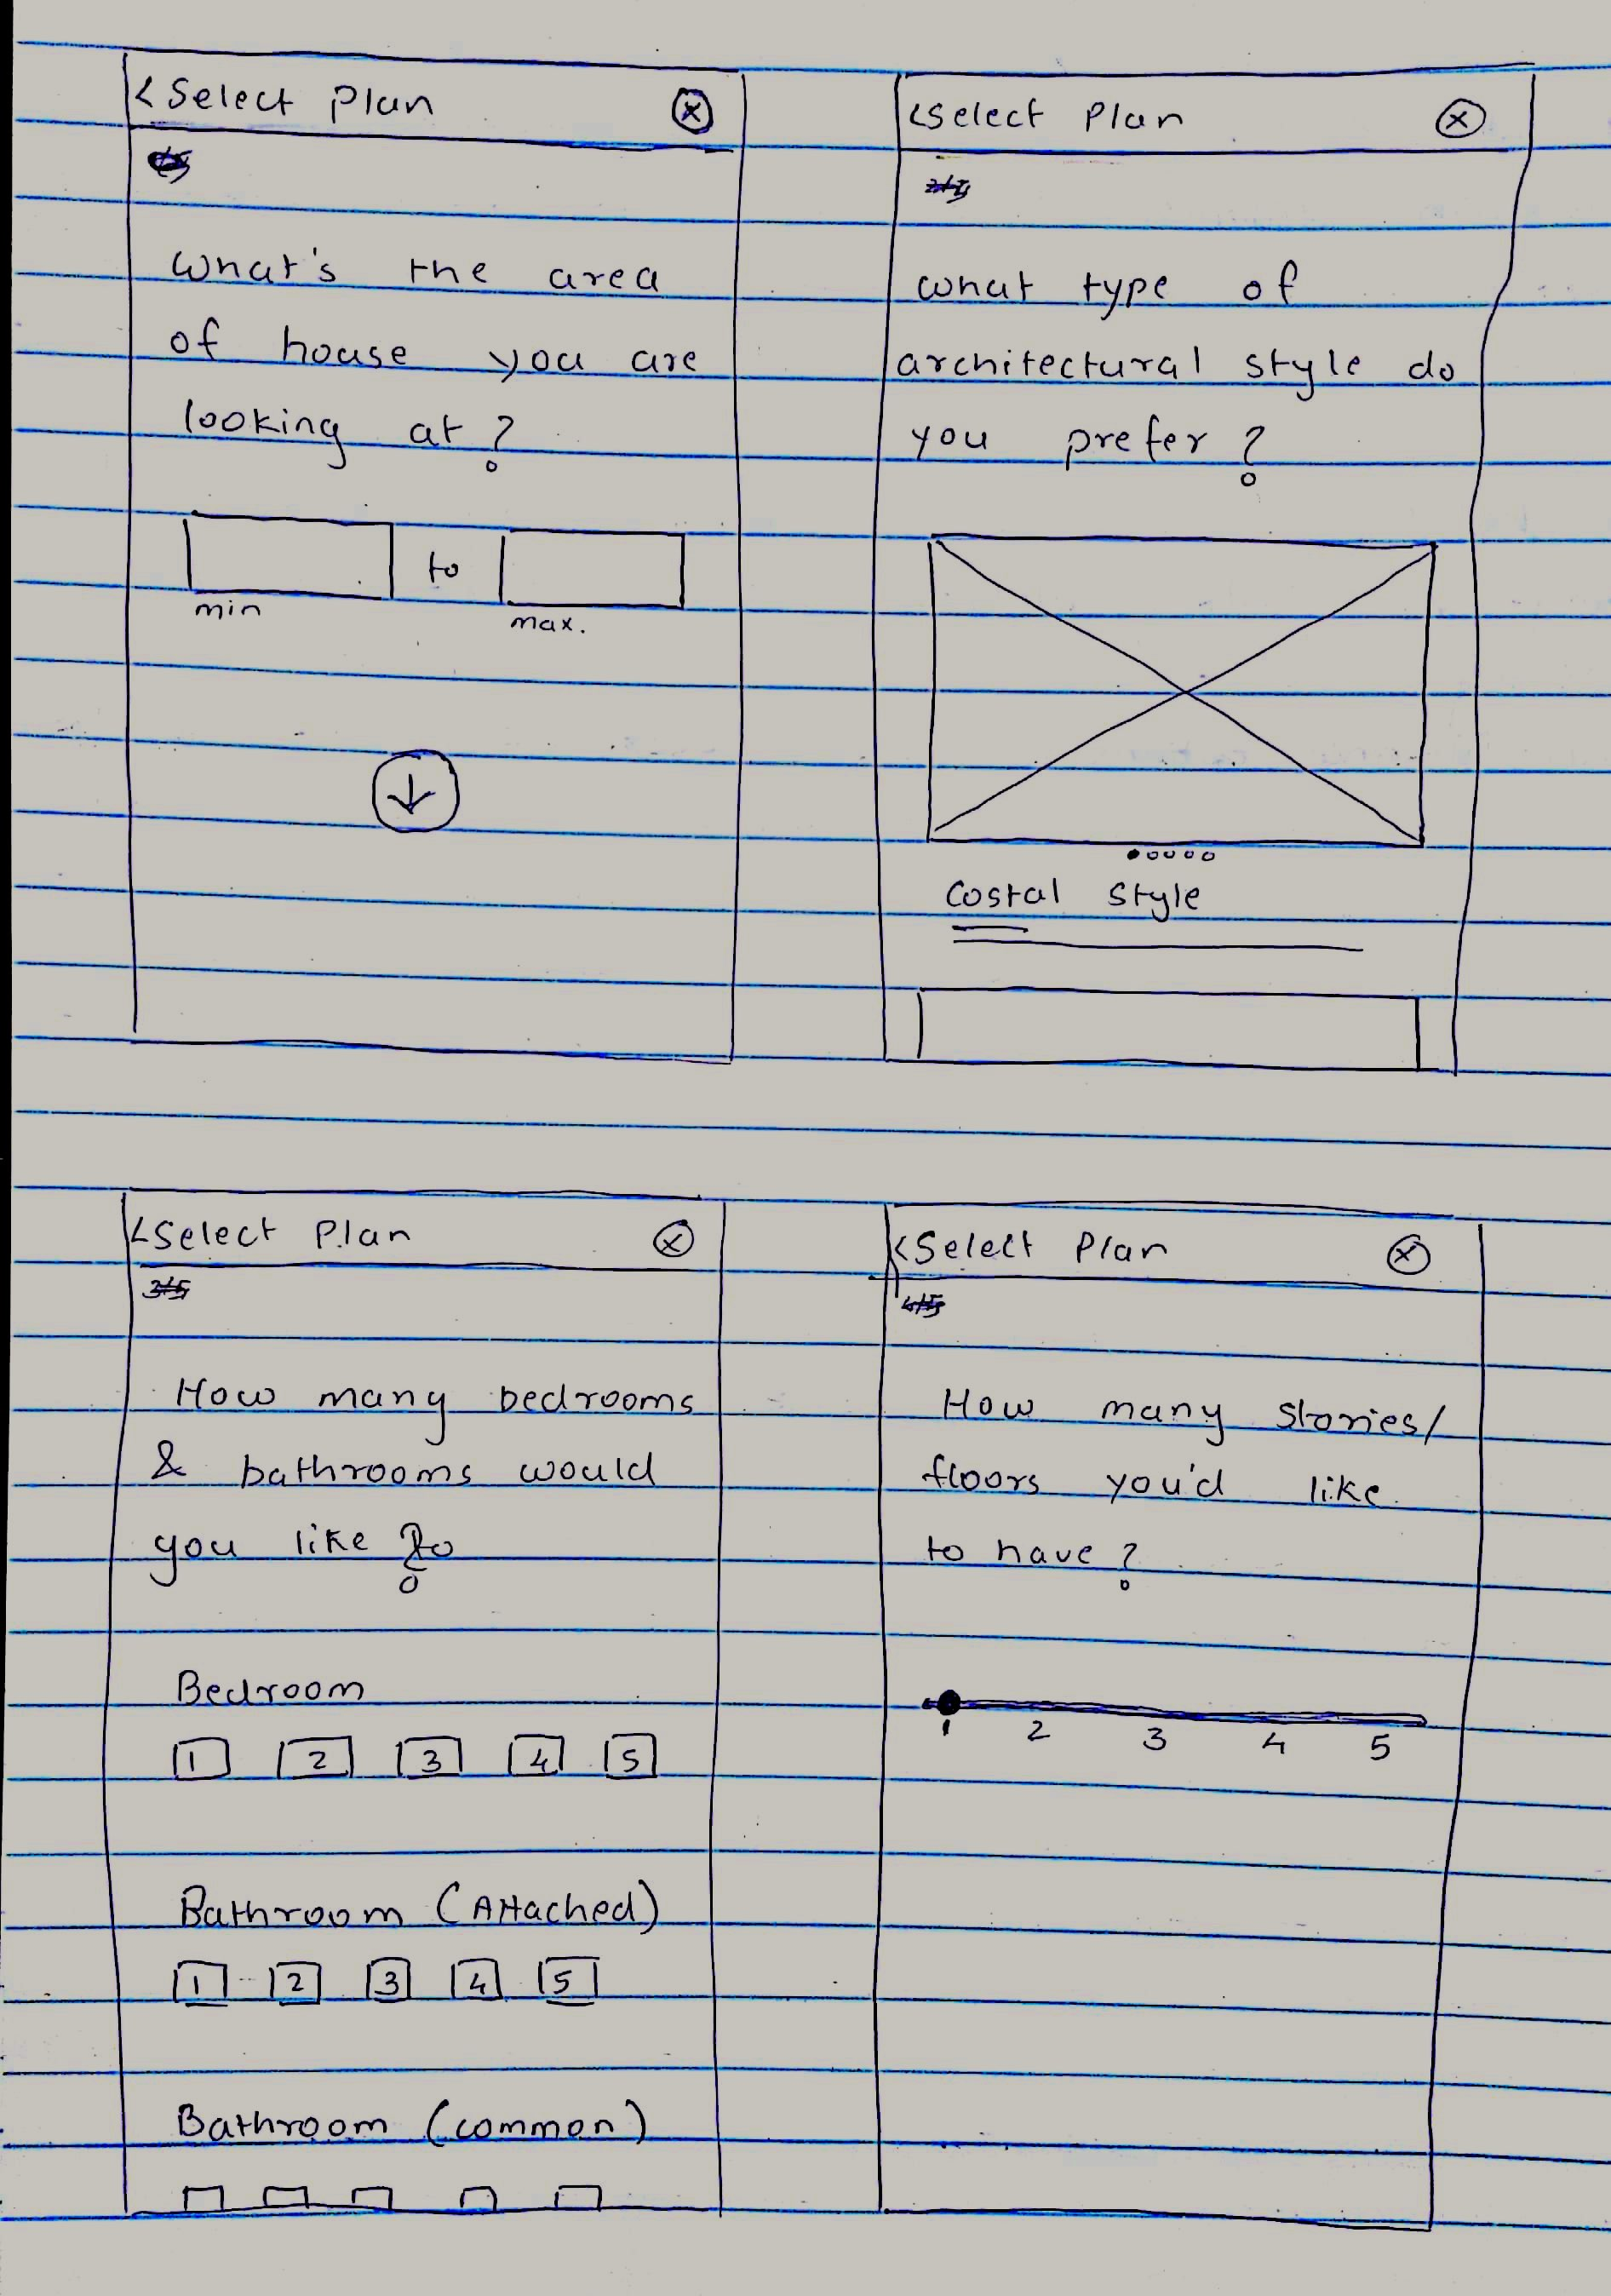 < Select Plan ⓧ
What's the area
of house you are
looking at ?
to
min
max.
< Select Plan ⓧ
what type of
architectural style do
you prefer ?
Costal Style
< Select Plan ⓧ
How many bedrooms
& bathrooms would
you like ?
Bedroom
1 2 3 4 5
Bathroom (Attached)
1 2 3 4 5
Bathroom (common)
< Select Plan ⓧ
How many stories/
floors you'd like
to have ?
1 2 3 4 5